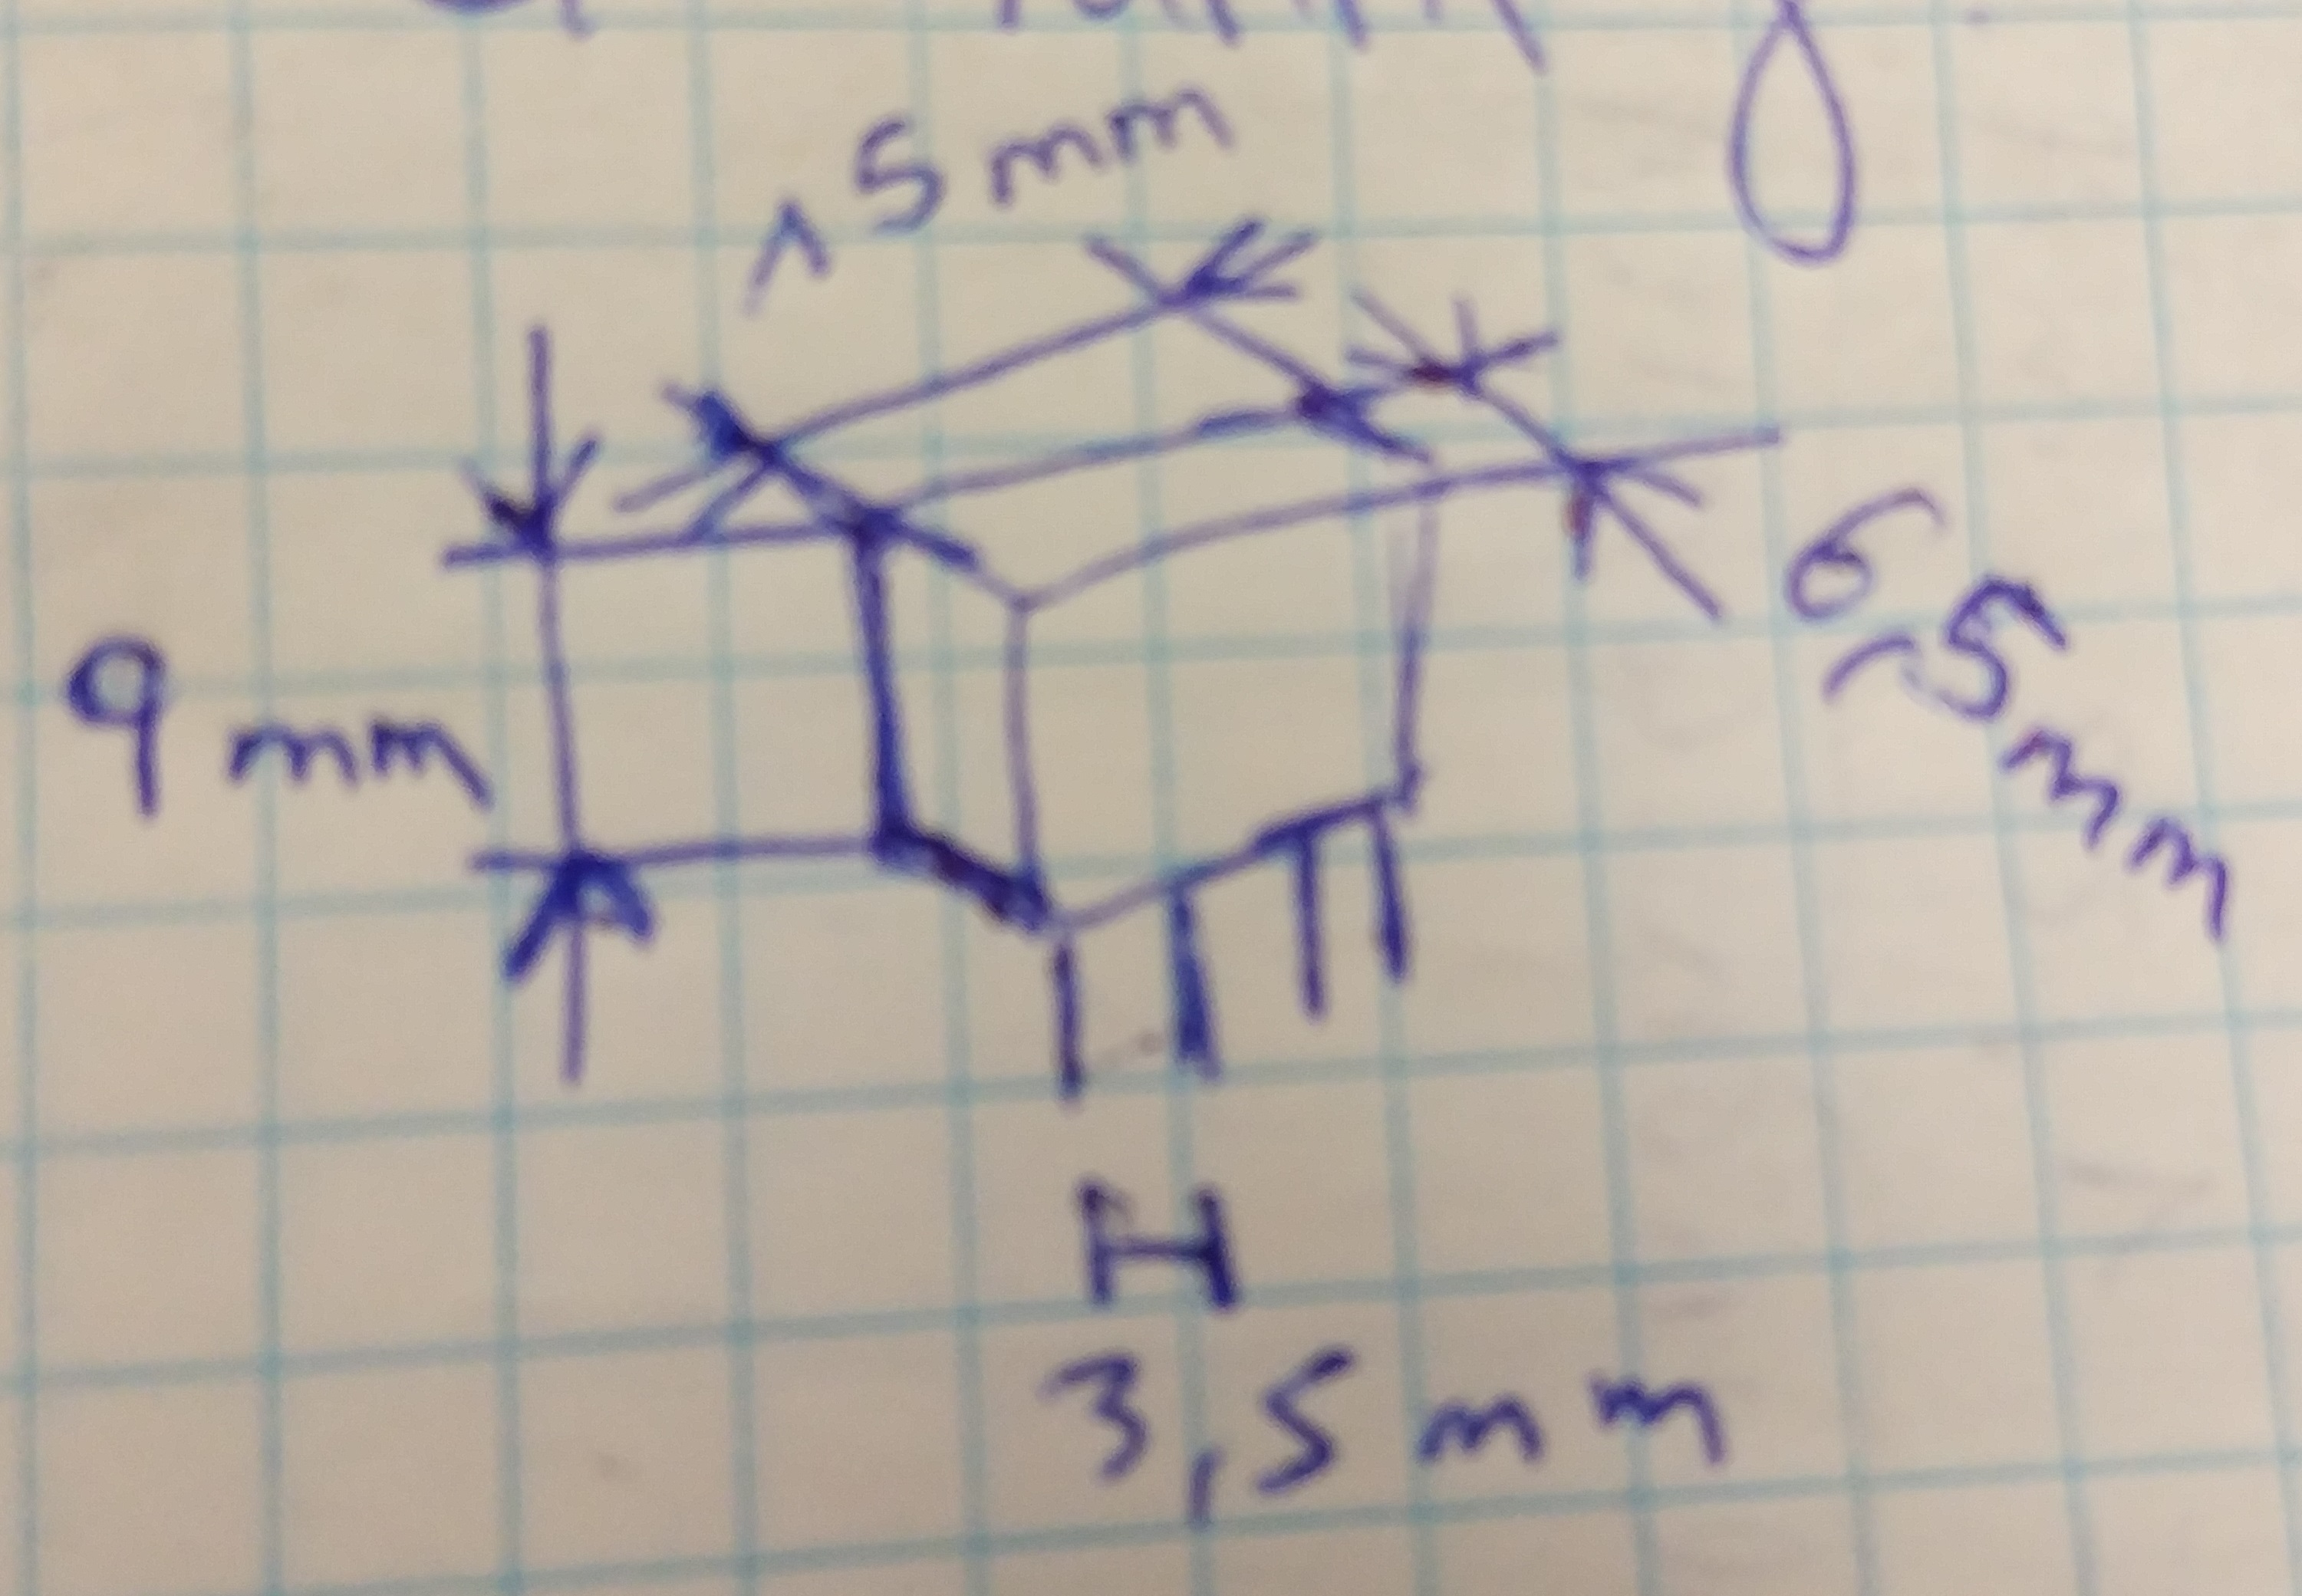 15mm
9mm
6,5mm
H
3,5mm